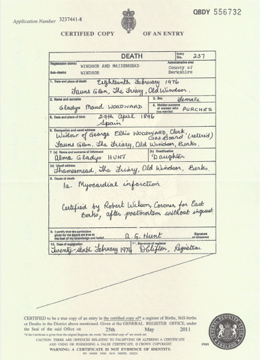 QBDY 556732
Application Number 3237441-8
CERTIFIED COPY OF AN ENTRY
DEATH
Entry No. 237
Registration district WINDSOR AND MAIDENHEAD
Administrative area
Sub-district WINDSOR
County of Berkshire
1. Date and place of death Eighteenth February 1976
Fauns Glen, The Friary, Old Windsor.
2. Name and surname
3. Sex Female
Gladys Maud WOODWARD
4. Maiden surname of woman who has married PURCHES
5. Date and place of birth 29th April 1896
Spain
6. Occupation and usual address
Widow of George Ellis WOODWARD, Clerk
Gas Board (retired)
Fauns Glen, The Friary, Old Windsor, Berks.
7. (a) Name and surname of informant
(b) Qualification
Alma Gladys HUNT
Daughter
(c) Usual address
Thamesmead, The Friary, Old Windsor, Berks.
8. Cause of death
1a. Myocardial infarction
Certified by Robert Wilson, Coroner for East
Berks, after postmortem without inquest
9. I certify that the particulars given by me above are true to the best of my knowledge and belief
A. G. Hunt
Signature of informant
10. Date of registration
11. Signature of registrar
Twenty-sixth February 1976
Registrar
CERTIFIED to be a true copy of an entry in the certified copy of a register of Births, Still-births
or Deaths in the District above mentioned. Given at the GENERAL REGISTER OFFICE,
under the Seal of the said Office on 25th May 2011
WARNING: A CERTIFICATE IS NOT EVIDENCE OF IDENTITY